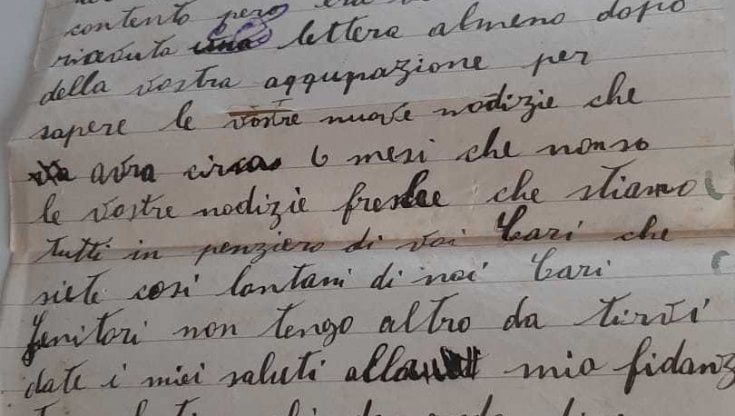 contento però era
riavuta una lettera almeno dopo
della vostra aggupazione per
sapere le vostre nuove nodizie che
avra circa 6 mesi che nonso
le vostre nodizie freshe che stiamo
tutti in penziero di voi Cari che
siete cosi lontani di noi Cari
Genitori non tengo altro da tirvi
date i miei saluti alla mia fidanz